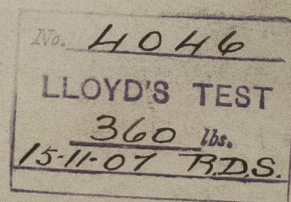 No. 4046
LLOYD'S TEST
360 lbs.
15-11-07 R.D.S.